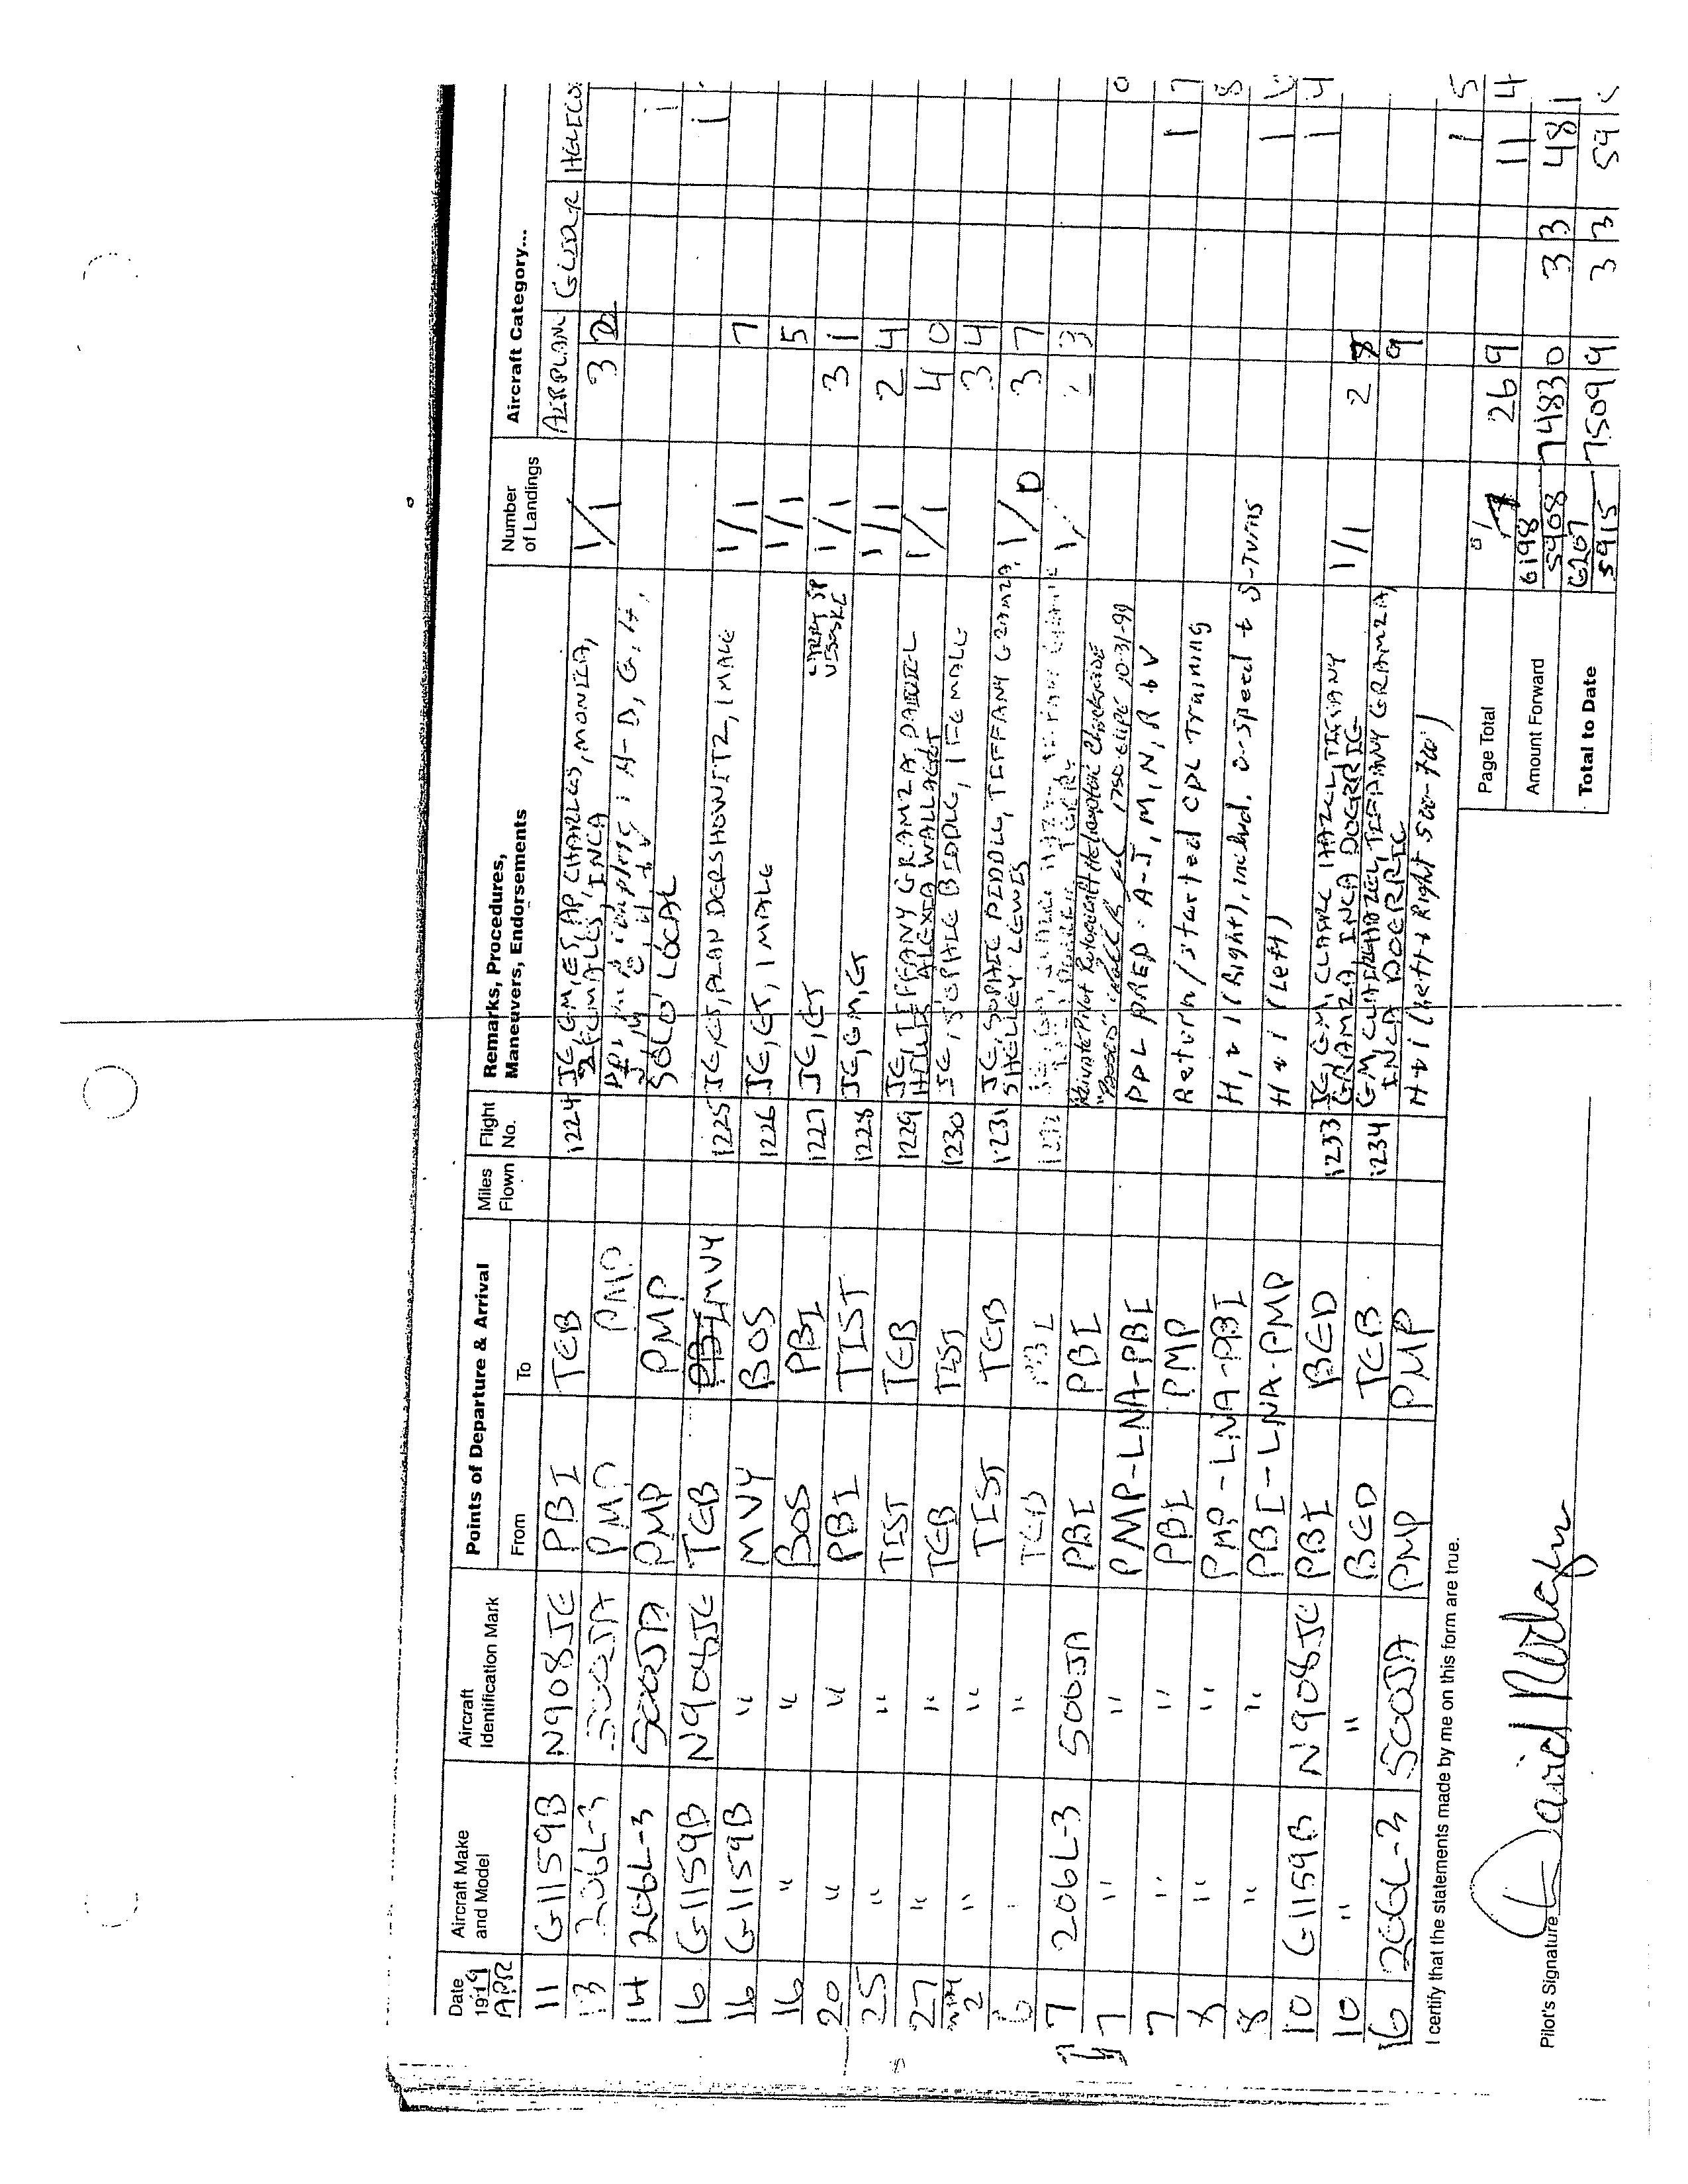 Date 1999 APR | Aircraft Make and Model | Aircraft Identification Mark | Points of Departure & Arrival From To | Miles Flown | Flight No. | Remarks, Procedures, Maneuvers, Endorsements | Number of Landings | Aircraft Category... AIRPLANE GLIDER HELICO
11 G1159B N908JE PBI TEB 1224 JE, GM, ET, AP, CHARLES, MONICA, 2 FEMALES, INCA 1/1 3
13 206L-3 500JA PMP PMP 1
14 206L-3 500JA PMP PMP SOLO LOCAL
16 G1159B N908JE TEB MVY 1225 JE, ET, ALAN DERSHOWITZ, 1 MALE 1/1 7
16 G1159B " MVY BOS 1226 JE, ET, 1 MALE 1/1 5
16 " " BOS PBI 1227 JE, ET 1/1 3 1
20 " " PBI TIST 1228 JE, GM, ET 1/1 2 4
25 " " TIST TEB 1229 JE, TIFFANY GRAMZA, 1/1 4 0
27 " " TEB TIST 1230 JE, SOPHIE BIDDLE, 1 FEMALE 3 4
MAY 2 " " TIST TEB 1231 JE, SOPHIE BIDDLE, TIFFANY GRAMZA, SHELLEY LEWIS 1/0 3 7
6 " TEB PBI 1232 1/ 2 3
7 206L-3 500JA PBI PBI Private Pilot Rotorcraft Helicopter Checkride "Passed"
7 " " PMP-LNA-PBI PPL PREP. A-J, M, N, R & V 0
7 " " PBI PMP Return/started CPL Training 1 7
8 " " PMP-LNA-PBI H, & I (Right), includ. speed & S-Turns 8
8 " " PBI-LNA-PMP H & I (Left) 1
10 G1159B N908JE PBI BED 1233 JE, GM, CLAIRE HAZEL, TIFFANY GRAMZA, INCA DOERRIG 1/1 2
10 " " BED TEB 1234 GM, CLAIRE HAZEL, TIFFANY GRAMZA, INCA DOERRIG 9
16 206L-3 500JA PMP PMP H & I (Left & Right 500-700')
I certify that the statements made by me on this form are true.
Page Total 26 9 1 5
Amount Forward 6198 5908 7483 0 3 3 48 1
Total to Date 6207 5915 7509 9 3 3 59
Pilot's Signature David Rodgers